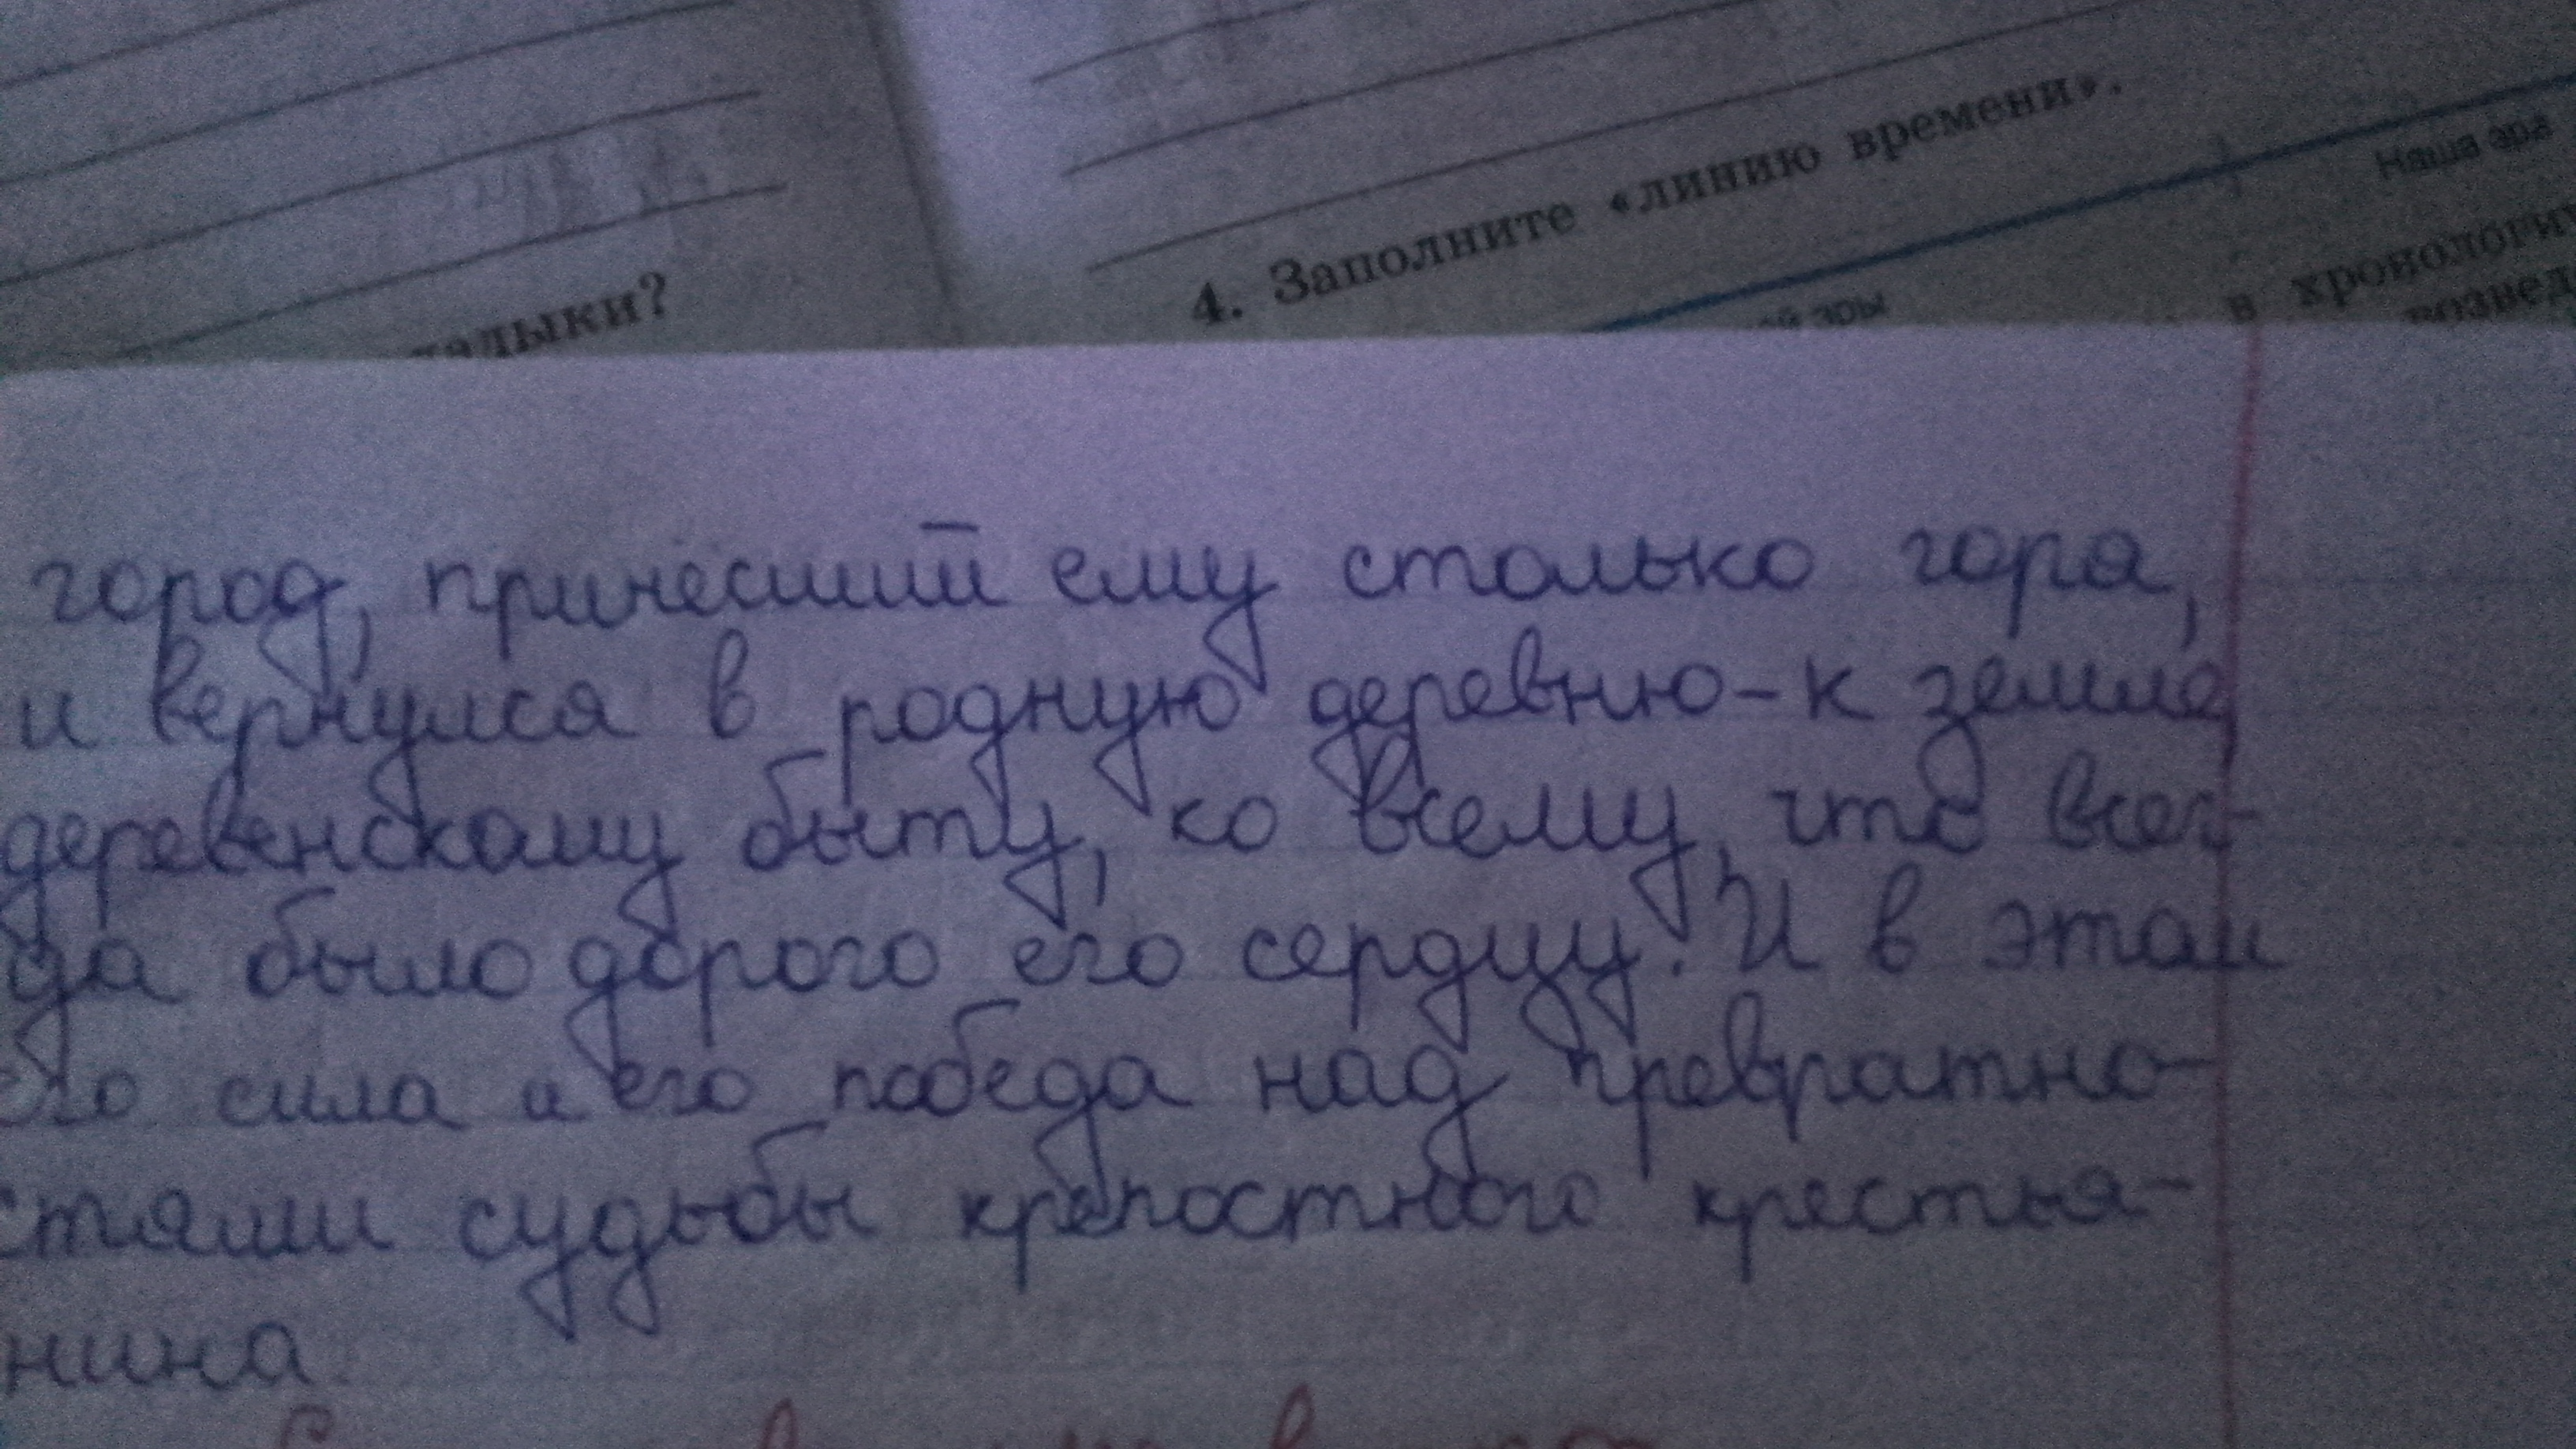 4. Заполните «линию времени».
Наша эра
эры
в
город, принёсший ему столько горя,
и вернулся в родную деревню - к земле,
деревенскому быту, ко всему, что всег-
да было дорого его сердцу. И в этом
его сила и его победа над превратно-
стями судьбы крепостного крестья-
нина.